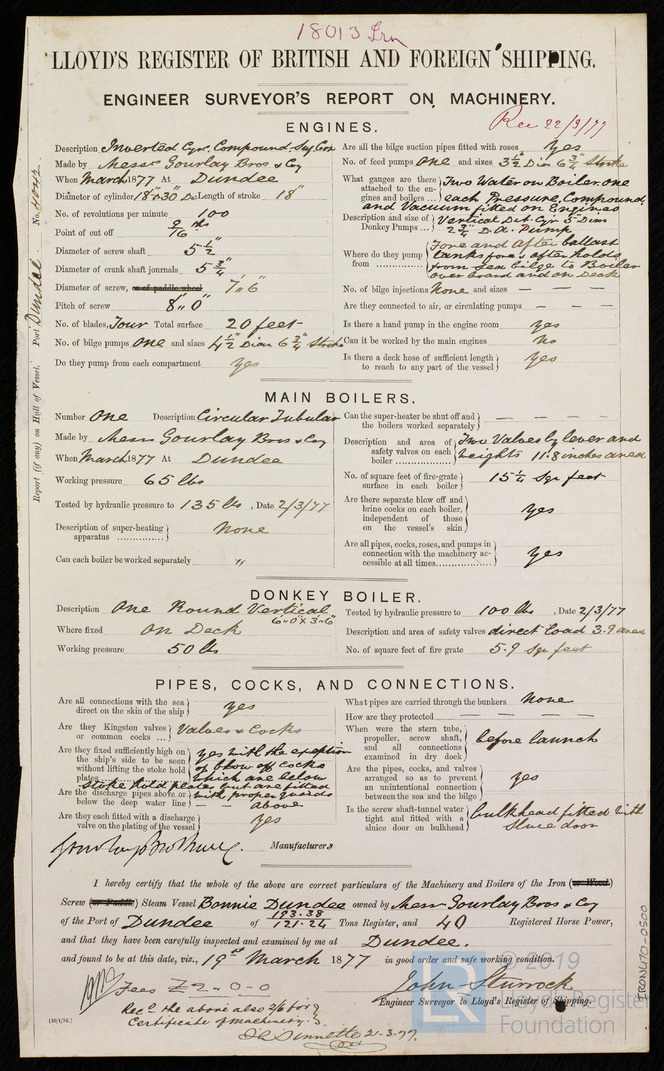 18013 Irn
LLOYD'S REGISTER OF BRITISH AND FOREIGN SHIPPING.
ENGINEER SURVEYOR'S REPORT ON MACHINERY.
Rec 22/3/77
Report (if any) on Hull of Vessel. Port Dundee. No. 4042
ENGINES.
Description Inverted Cyr. Compound Sur Con
Made by Messrs Gourlay Bros & Coy
When March 1877 At Dundee
Diameter of cylinder 18"x30" Do Length of stroke 18"
No. of revolutions per minute 100
Point of cut off 9/16 ths
Diameter of screw shaft 5 1/2"
Diameter of crank shaft journals 5 3/4"
Diameter of screw, or of paddle wheel 7'.,6"
Pitch of screw 8'.,0"
No. of blades, Four Total surface 20 feet
No. of bilge pumps One and sizes 4 1/2" Dia 6 3/4" Stroke
Do they pump from each compartment yes
Are all the bilge suction pipes fitted with roses yes
No. of feed pumps One and sizes 3 1/2" Dia 6 3/4" Stroke
What gauges are there attached to the engines and boilers Two Water on Boiler. one
each Pressure, Compound,
and Vacuum fitted on Engines
Description and size of Donkey Pumps Vertical Dct. Cyr 5" Diar
2 3/4" D.A. Pump
Where do they pump from Fore and After ballast
tanks fore & after holds
from sea bilge to Boiler
over board and on Deck
No. of bilge injections None and sizes — —
Are they connected to air, or circulating pumps — —
Is there a hand pump in the engine room yes
Can it be worked by the main engines No
Is there a deck hose of sufficient length to reach to any part of the vessel yes
MAIN BOILERS.
Number One Description Circular Tubular
Made by Messrs Gourlay Bros & Coy
When March 1877 At Dundee
Working pressure 65 lbs
Tested by hydraulic pressure to 135 lbs, Date 2/3/77
Description of super-heating apparatus None
Can each boiler be worked separately "
Can the super-heater be shut off and the boilers worked separately — — — —
Description and area of safety valves on each boiler Two Valves by lever and
weights 11.8 inches area
No. of square feet of fire-grate surface in each boiler 15 1/4 Sqr feet
Are there separate blow off and brine cocks on each boiler, independent of those on the vessel's skin yes
Are all pipes, cocks, roses, and pumps in connection with the machinery accessible at all times yes
DONKEY BOILER.
Description One Round Vertical
6'.,0" x 3'.,6"
Where fixed On Deck
Working pressure 50 lbs
Tested by hydraulic pressure to 100 lbs, Date 2/3/77
Description and area of safety valves direct load 3.9 area
No. of square feet of fire grate 5.9 Sqr feet
PIPES, COCKS, AND CONNECTIONS.
Are all connections with the sea direct on the skin of the ship yes
Are they Kingston valves or common cocks Valves & Cocks
Are they fixed sufficiently high on the ship's side to be seen without lifting the stoke hold plates yes with the exception
of blow off cocks
which are below
stoke hold plates but are fitted
with proper guards
Are the discharge pipes above or below the deep water line — — above
Are they each fitted with a discharge valve on the plating of the vessel yes
What pipes are carried through the bunkers None
How are they protected — — — —
When were the stern tube, propeller, screw shaft, and all connections examined in dry dock before launch
Are the pipes, cocks, and valves arranged so as to prevent an unintentional connection between the sea and the bilge yes
Is the screw shaft-tunnel water tight and fitted with a sluice door on bulkhead bulkhead fitted with
sluice door
Manufacturers
I hereby certify that the whole of the above are correct particulars of the Machinery and Boilers of the Iron (or Wood)
Screw (or Paddle) Steam Vessel Bonnie Dundee owned by Messrs Gourlay Bros & Coy
of the Port of Dundee of 193.38 / 121.24 Tons Register, and 40 Registered Horse Power,
and that they have been carefully inspected and examined by me at Dundee.
and found to be at this date, viz., 19th March 1877 in good order and safe working condition.
Fees £2-0-0
John Sturrock
Engineer Surveyor to Lloyd's Register of Shipping.
Recd the above also 2/6 for
Certificate of Machinery.
21-3-77.
(10/1/76.)
LR © 2019
Lloyd's Register
Foundation
IRON470-0500